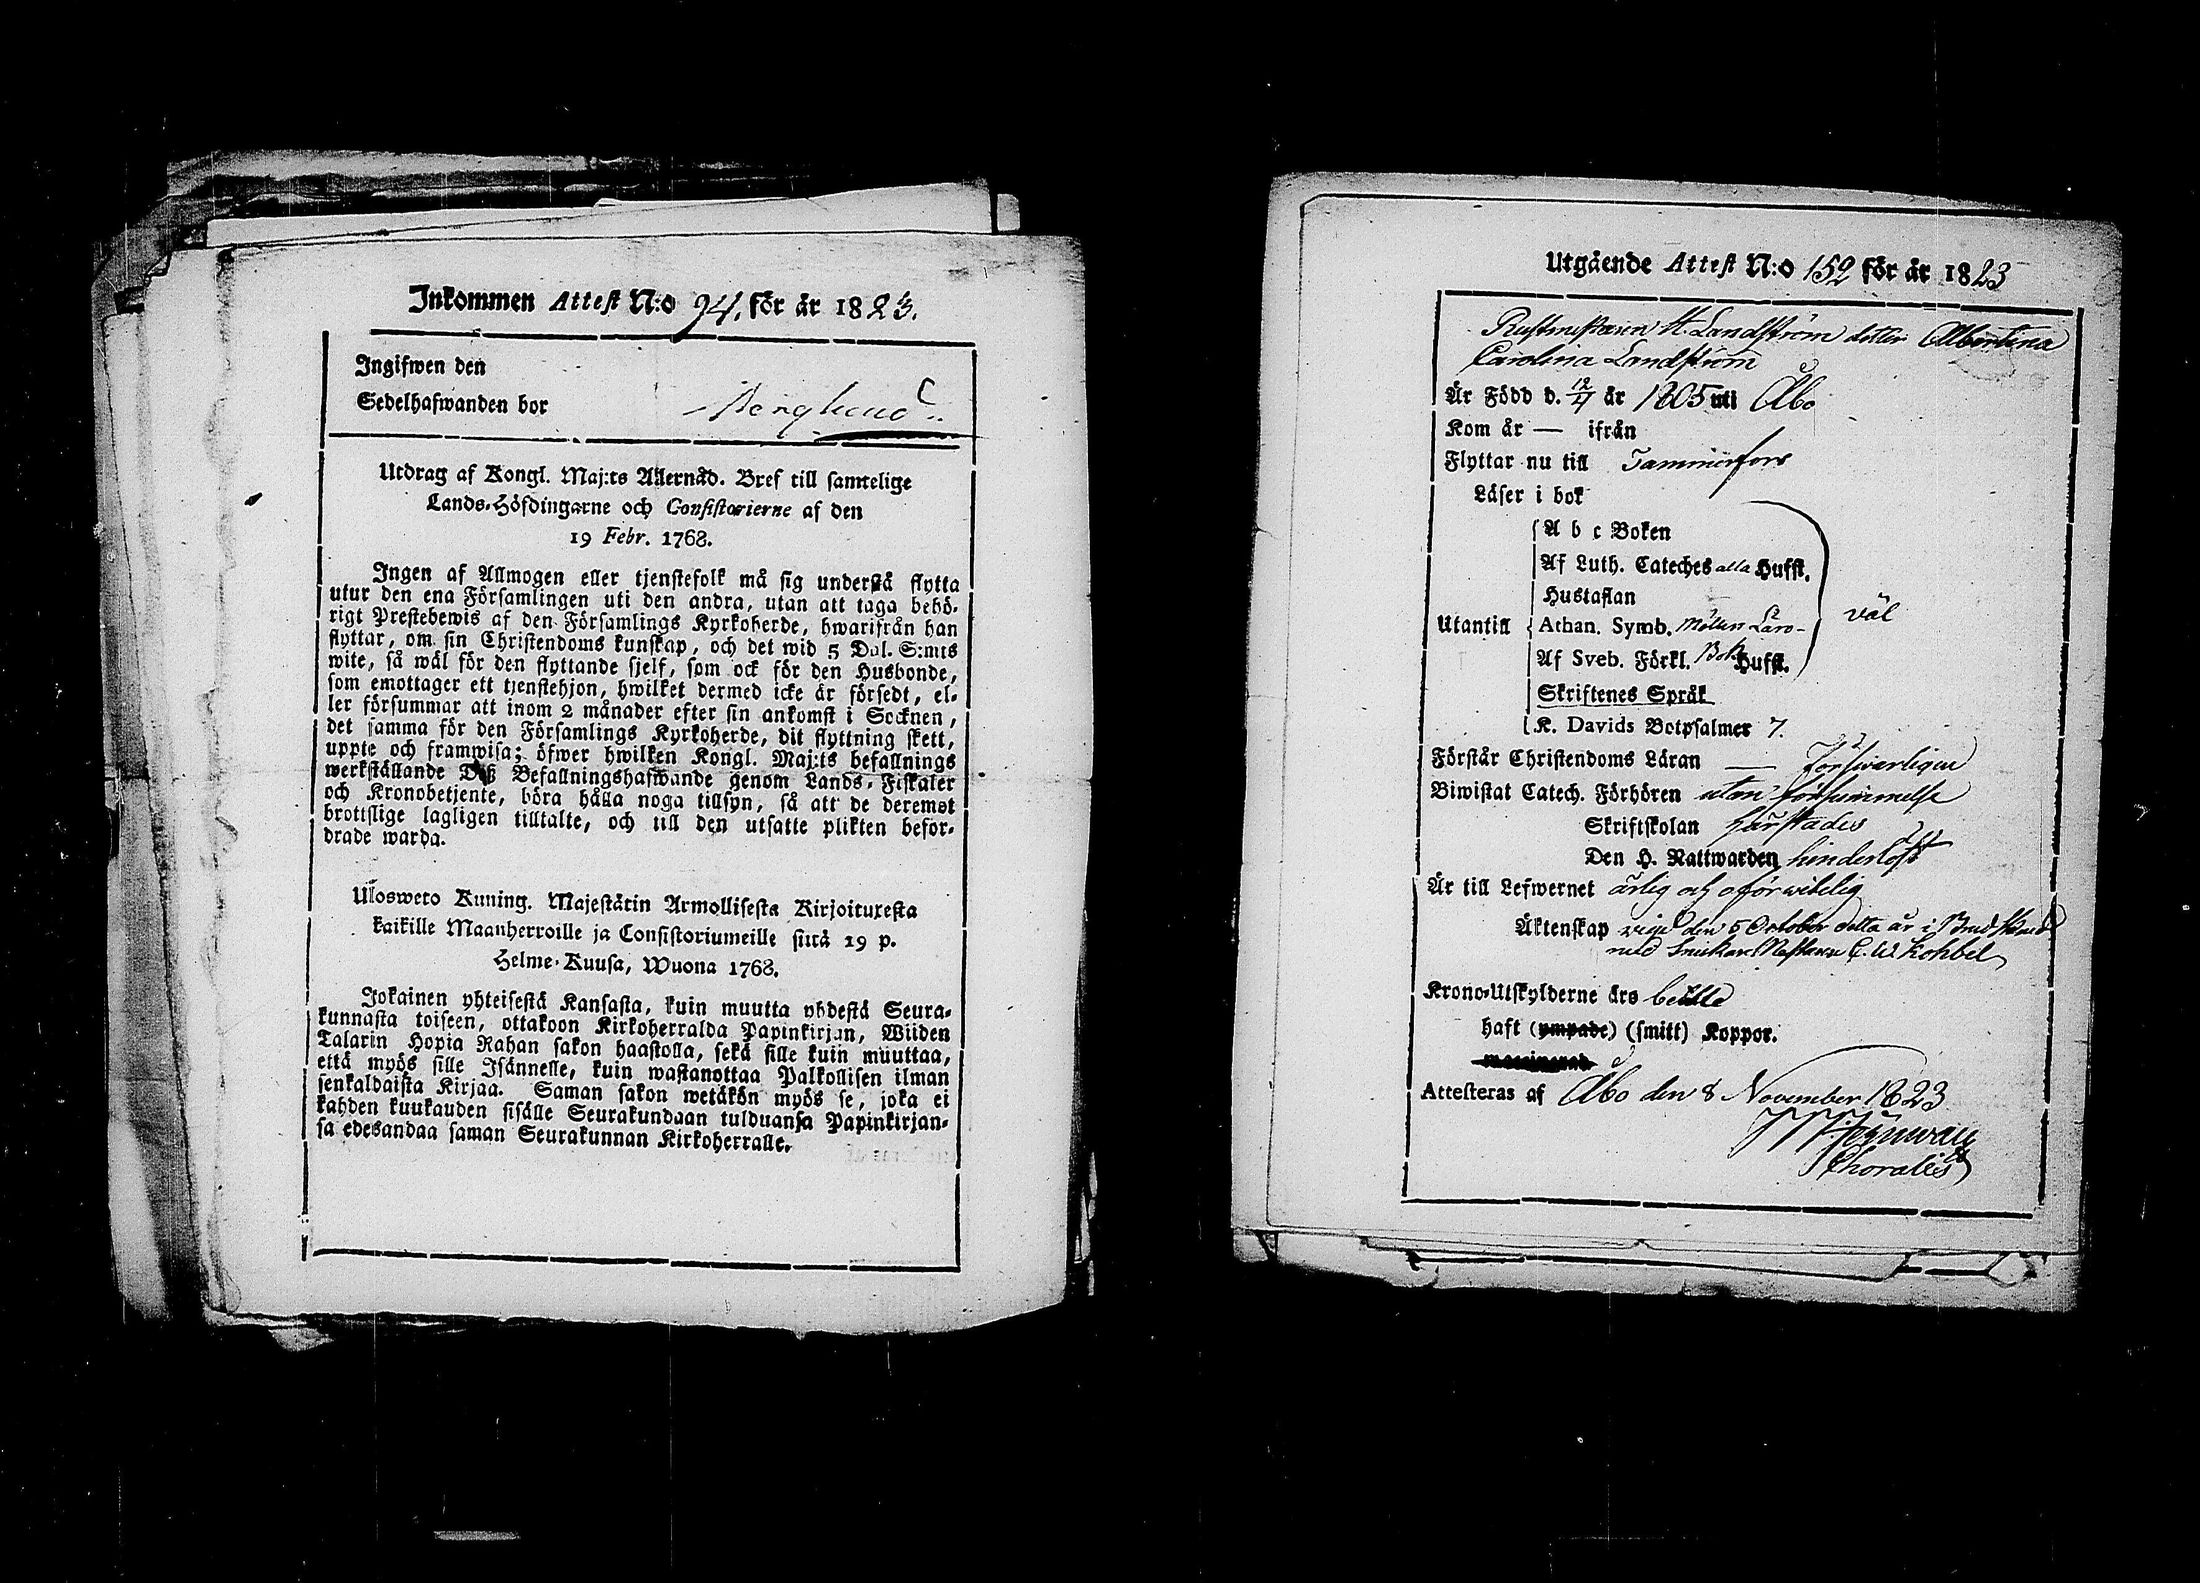 Inkommen Attest N:o 94. för år 1823.
Ingifwen den
Sedelhafwanden bor Berglund
Utdrag af Kongl. Maj:ts Allernåd. Bref till samtelige
Lands-Höfdingarne och Consistorierne af den
19 Febr. 1768.
Ingen af Allmogen eller tjenstefolk må sig understå flytta
utur den ena Församlingen uti den andra, utan att taga behö-
rigt Prestebewis af den Församlings Kyrkoherde, hwarifrån han
flyttar, om sin Christendoms kunskap, och det wid 5 Dal. S:mts
wite, så wäl för den flyttande sjelf, som ock för den Husbonde,
som emottager ett tjenstehjon, hwilket dermed icke är försedt, el-
ler försummar att inom 2 månader efter sin ankomst i Socknen,
det samma för den Församlings Kyrkoherde, dit flyttning skett,
uppte och framwisa; öfwer hwilken Kongl. Maj:ts befallnings
werkställande Deß Befallningshafwande genom Lands-Fiskaler
och Kronobetjente, böra hålla noga tillsyn, så att de deremot
brottslige lagligen tilltalte, och till den utsatte plikten befor-
drade warda.
Ulosweto Kuning. Majestätin Armollisesta Kirjoituxesta
kaikille Maanherroille ja Consistoriumeille siitä 19 p.
Helme-Kuusa, Wuona 1768.
Jokainen yhteisestä Kansasta, kuin muutta yhdestä Seura-
kunnasta toiseen, ottakoon Kirkoherralda Papinkirjan, Wiiden
Talarin Hopia Rahan sakon haastolla, sekä sille kuin muuttaa,
että myös sille Isännelle, kuin wastanottaa Palkollisen ilman
senkaldaista Kirjaa. Saman sakon wetäkön myös se, joka ei
kahden kuukauden sisälle Seurakundaan tulduansa Papinkirjan-
sa edesandaa saman Seurakunnan Kirkoherralle.
Utgående Attest N:o 152 för år 1823
Rustmästaren H. Landström dotter Albertina
Carolina Landström
Är Född d. 12/4 år 1805 uti Åbo
Kom år — ifrån
Flyttar nu till Tammerfors
Läser i bok
A b c Boken
Af Luth. Cateches alla Hufst.
Hustaflan
Utantill Athan. Symb. Möllers Läro-
Af Sveb. Förkl. Bok Hufst.
väl
Skriftenes Språk
K. Davids Botpsalmer 7.
Förstår Christendoms Läran — försvarligen
Biwistat Catech. Förhören utan försummelse
Skriftskolan härstädes
Den H. Nattwarden hinderlöst
Är till Lefwernet ärlig och oförwitelig
Äktenskap vigd den 5 October detta år i Brudstuad
med Snickare Mästaren C. W. Kohbel
Krono-Utskylderne äro betalte
haft (ympade) (smitt) Koppor.
vaccinerad
Attesteras af Åbo den 8 November 1823